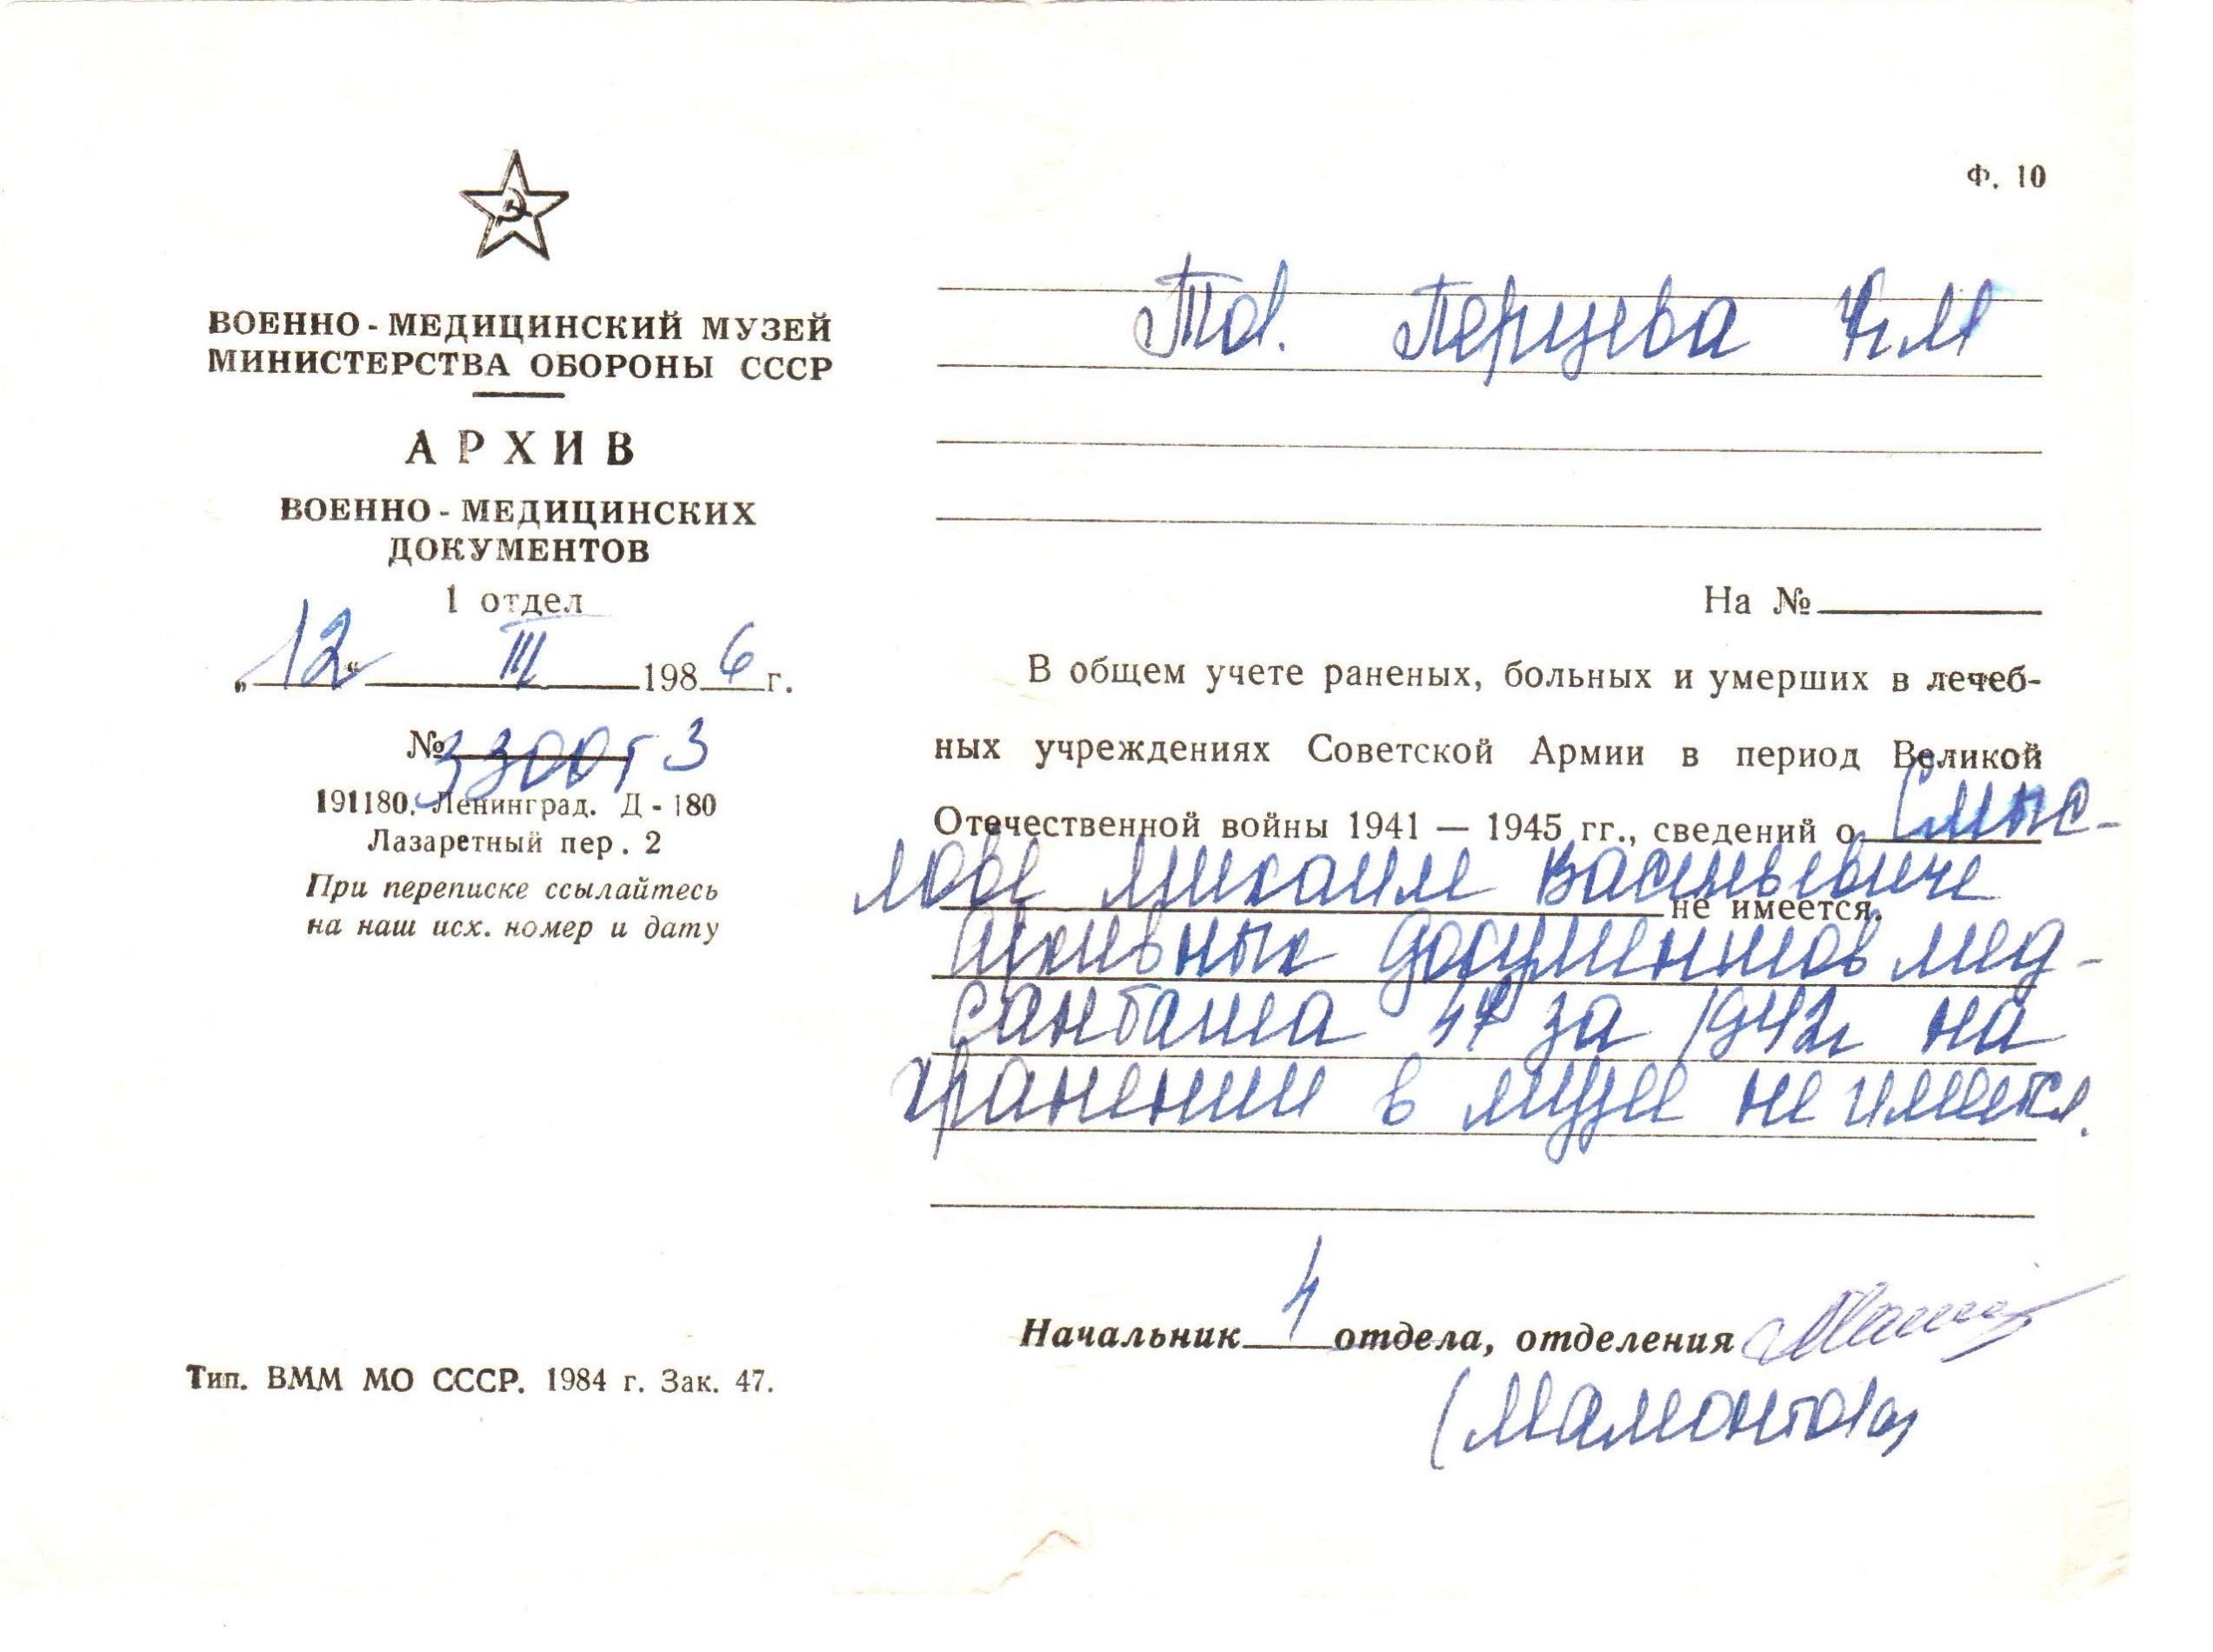 Ф. 10
ВОЕННО-МЕДИЦИНСКИЙ МУЗЕЙ
МИНИСТЕРСТВА ОБОРОНЫ СССР
АРХИВ
ВОЕННО-МЕДИЦИНСКИХ
ДОКУМЕНТОВ
1 отдел
„12“ III 1986 г.
№
191180. Ленинград. Д-180
Лазаретный пер. 2
При переписке ссылайтесь
на наш исх. номер и дату
Тип. ВММ МО СССР. 1984 г. Зак. 47.
Тов. Перцева
На №
В общем учете раненых, больных и умерших в лечеб-
ных учреждениях Советской Армии в период Великой
Отечественной войны 1941 — 1945 гг., сведений о Смыс-
лове Михаиле Васильевиче
не имеется.
Архивных документов мед-
санбата 47 за 1942г на
хранении в музее не имеется.
Начальник 1 отдела, отделения
(Мамонтова)